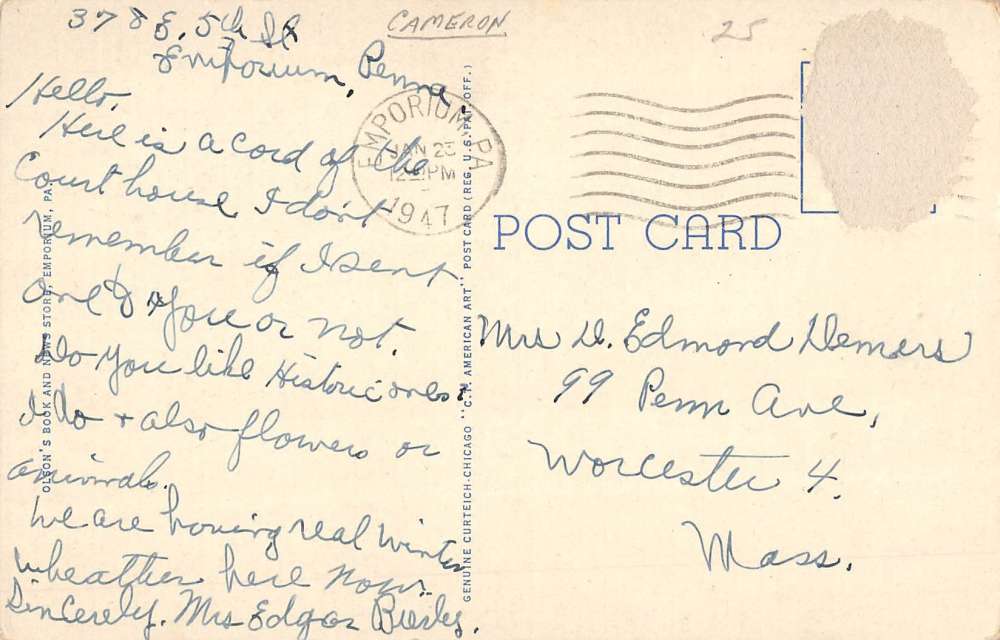 378 E. 5th St
Emporium, Penna.
CAMERON
25
Hello,
Here is a card of the
Court house I don't
remember if I sent
one to you or not.
Do you like Historic ones?
I do + also flowers or
animals.
We are having real winter
wheather here now.
Sincerely, Mrs Edgar
EMPORIUM, PA
JAN 23
12 PM
1947
POST CARD
Mrs D. Edmond Demers
99 Penn Ave,
Worcester 4.
Mass.
OLSON'S BOOK AND NEWS STORE, EMPORIUM, PA.
GENUINE CURTEICH-CHICAGO "C.T. AMERICAN ART" POST CARD (REG. U.S. PAT. OFF.)